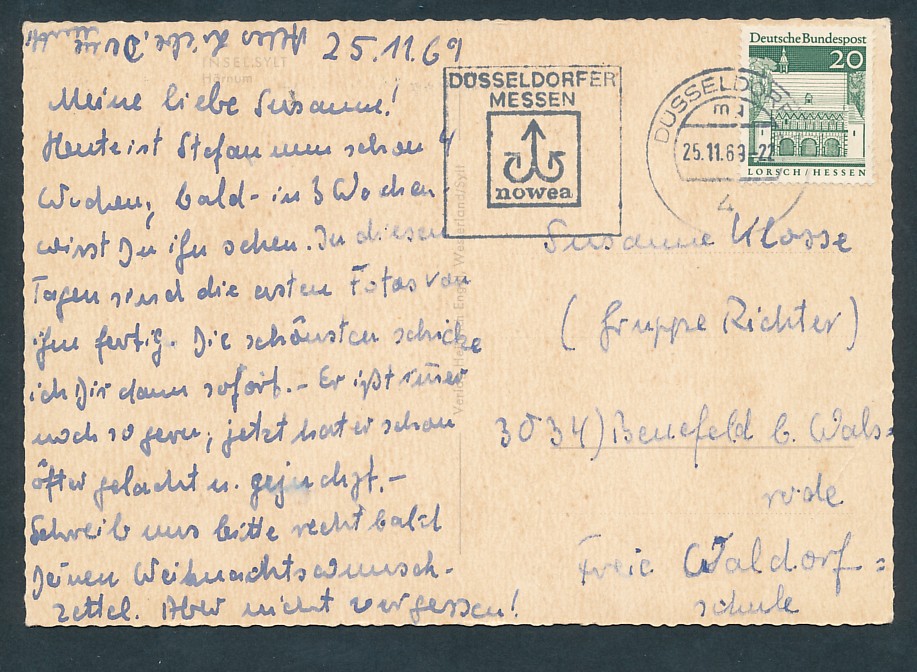 25.11.69
INSEL SYLT
Hörnum
Meine liebe Susanne!
Heute ist Stefan nun schon 4
Wochen, bald - in 3 Wochen -
wirst Du ihn sehen. In diesen
Tagen sind die ersten Fotos von
ihm fertig. Die schönsten schicke
ich Dir dann sofort. - Er ißt immer
noch so gern, jetzt hat er schon
öfter gelacht u. gejuchzt. -
Schreib uns bitte recht bald
Deinen Weihnachtswunsch-
zettel. Aber nicht vergessen!
Alles Liebe, Deine
Mutti
DÜSSELDORFER
MESSEN
nowea
DÜSSELDORF
25.11.69-22
4
Deutsche Bundespost
20
LORSCH/HESSEN
Susanne Klosse
(Gruppe Richter)
3034) Benefeld b. Wals=
rode
Freie Waldorf=
schule